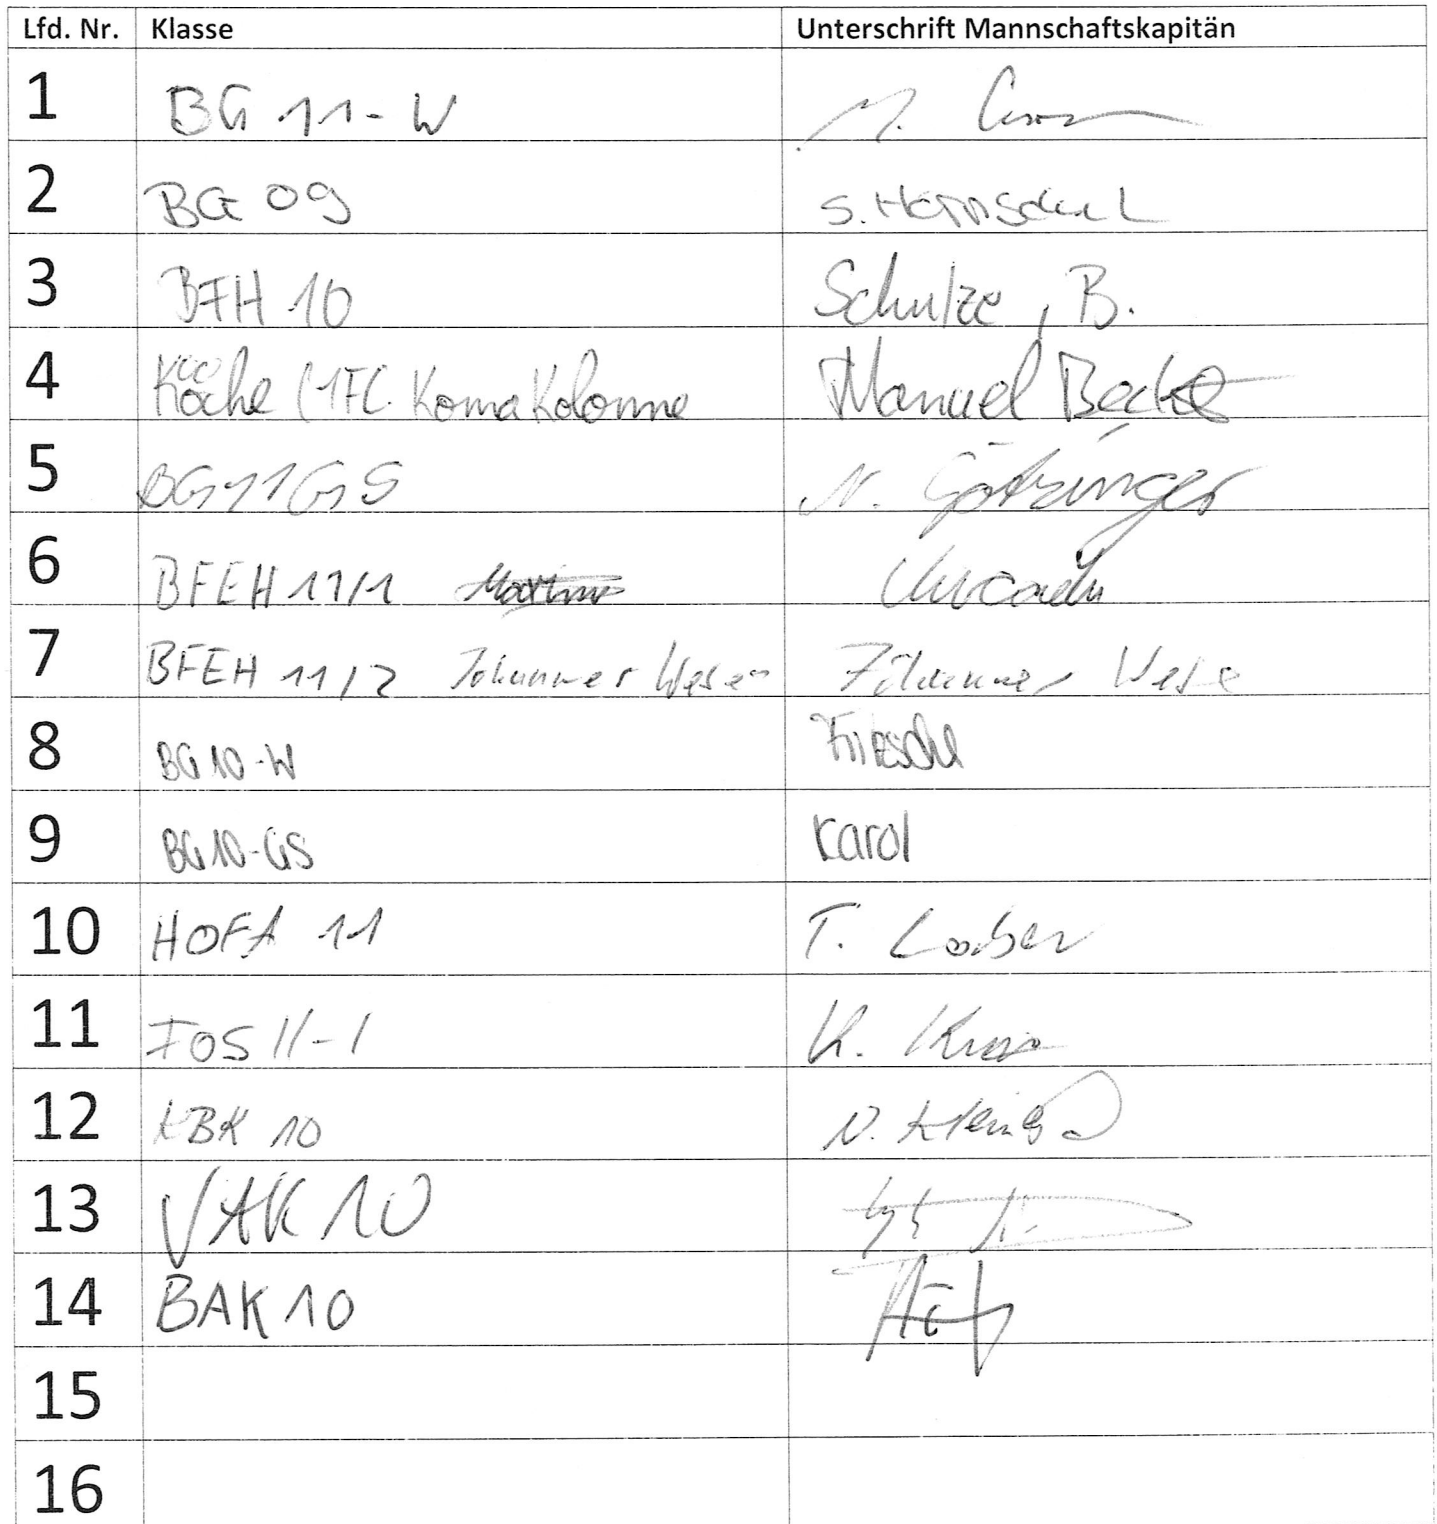 Lfd. Nr. Klasse Unterschrift Mannschaftskapitän
1 BG 11-W M.
2 BG 09 S.
3 BFH 10 Schulze, B.
4 Köche (1FC. Koma Kolonne Manuel Becker
5 BG11GS N. Götzinger
6 BFEH 11/1
7 BFEH 11/2 Johannes Weser Johannes Wese
8 BG10-W
9 BG10-GS Karol
10 HOFA 11 T.
11 FOS 11-1 K.
12 KBK 10 N.
13 VAK 10
14 BAK 10
15
16